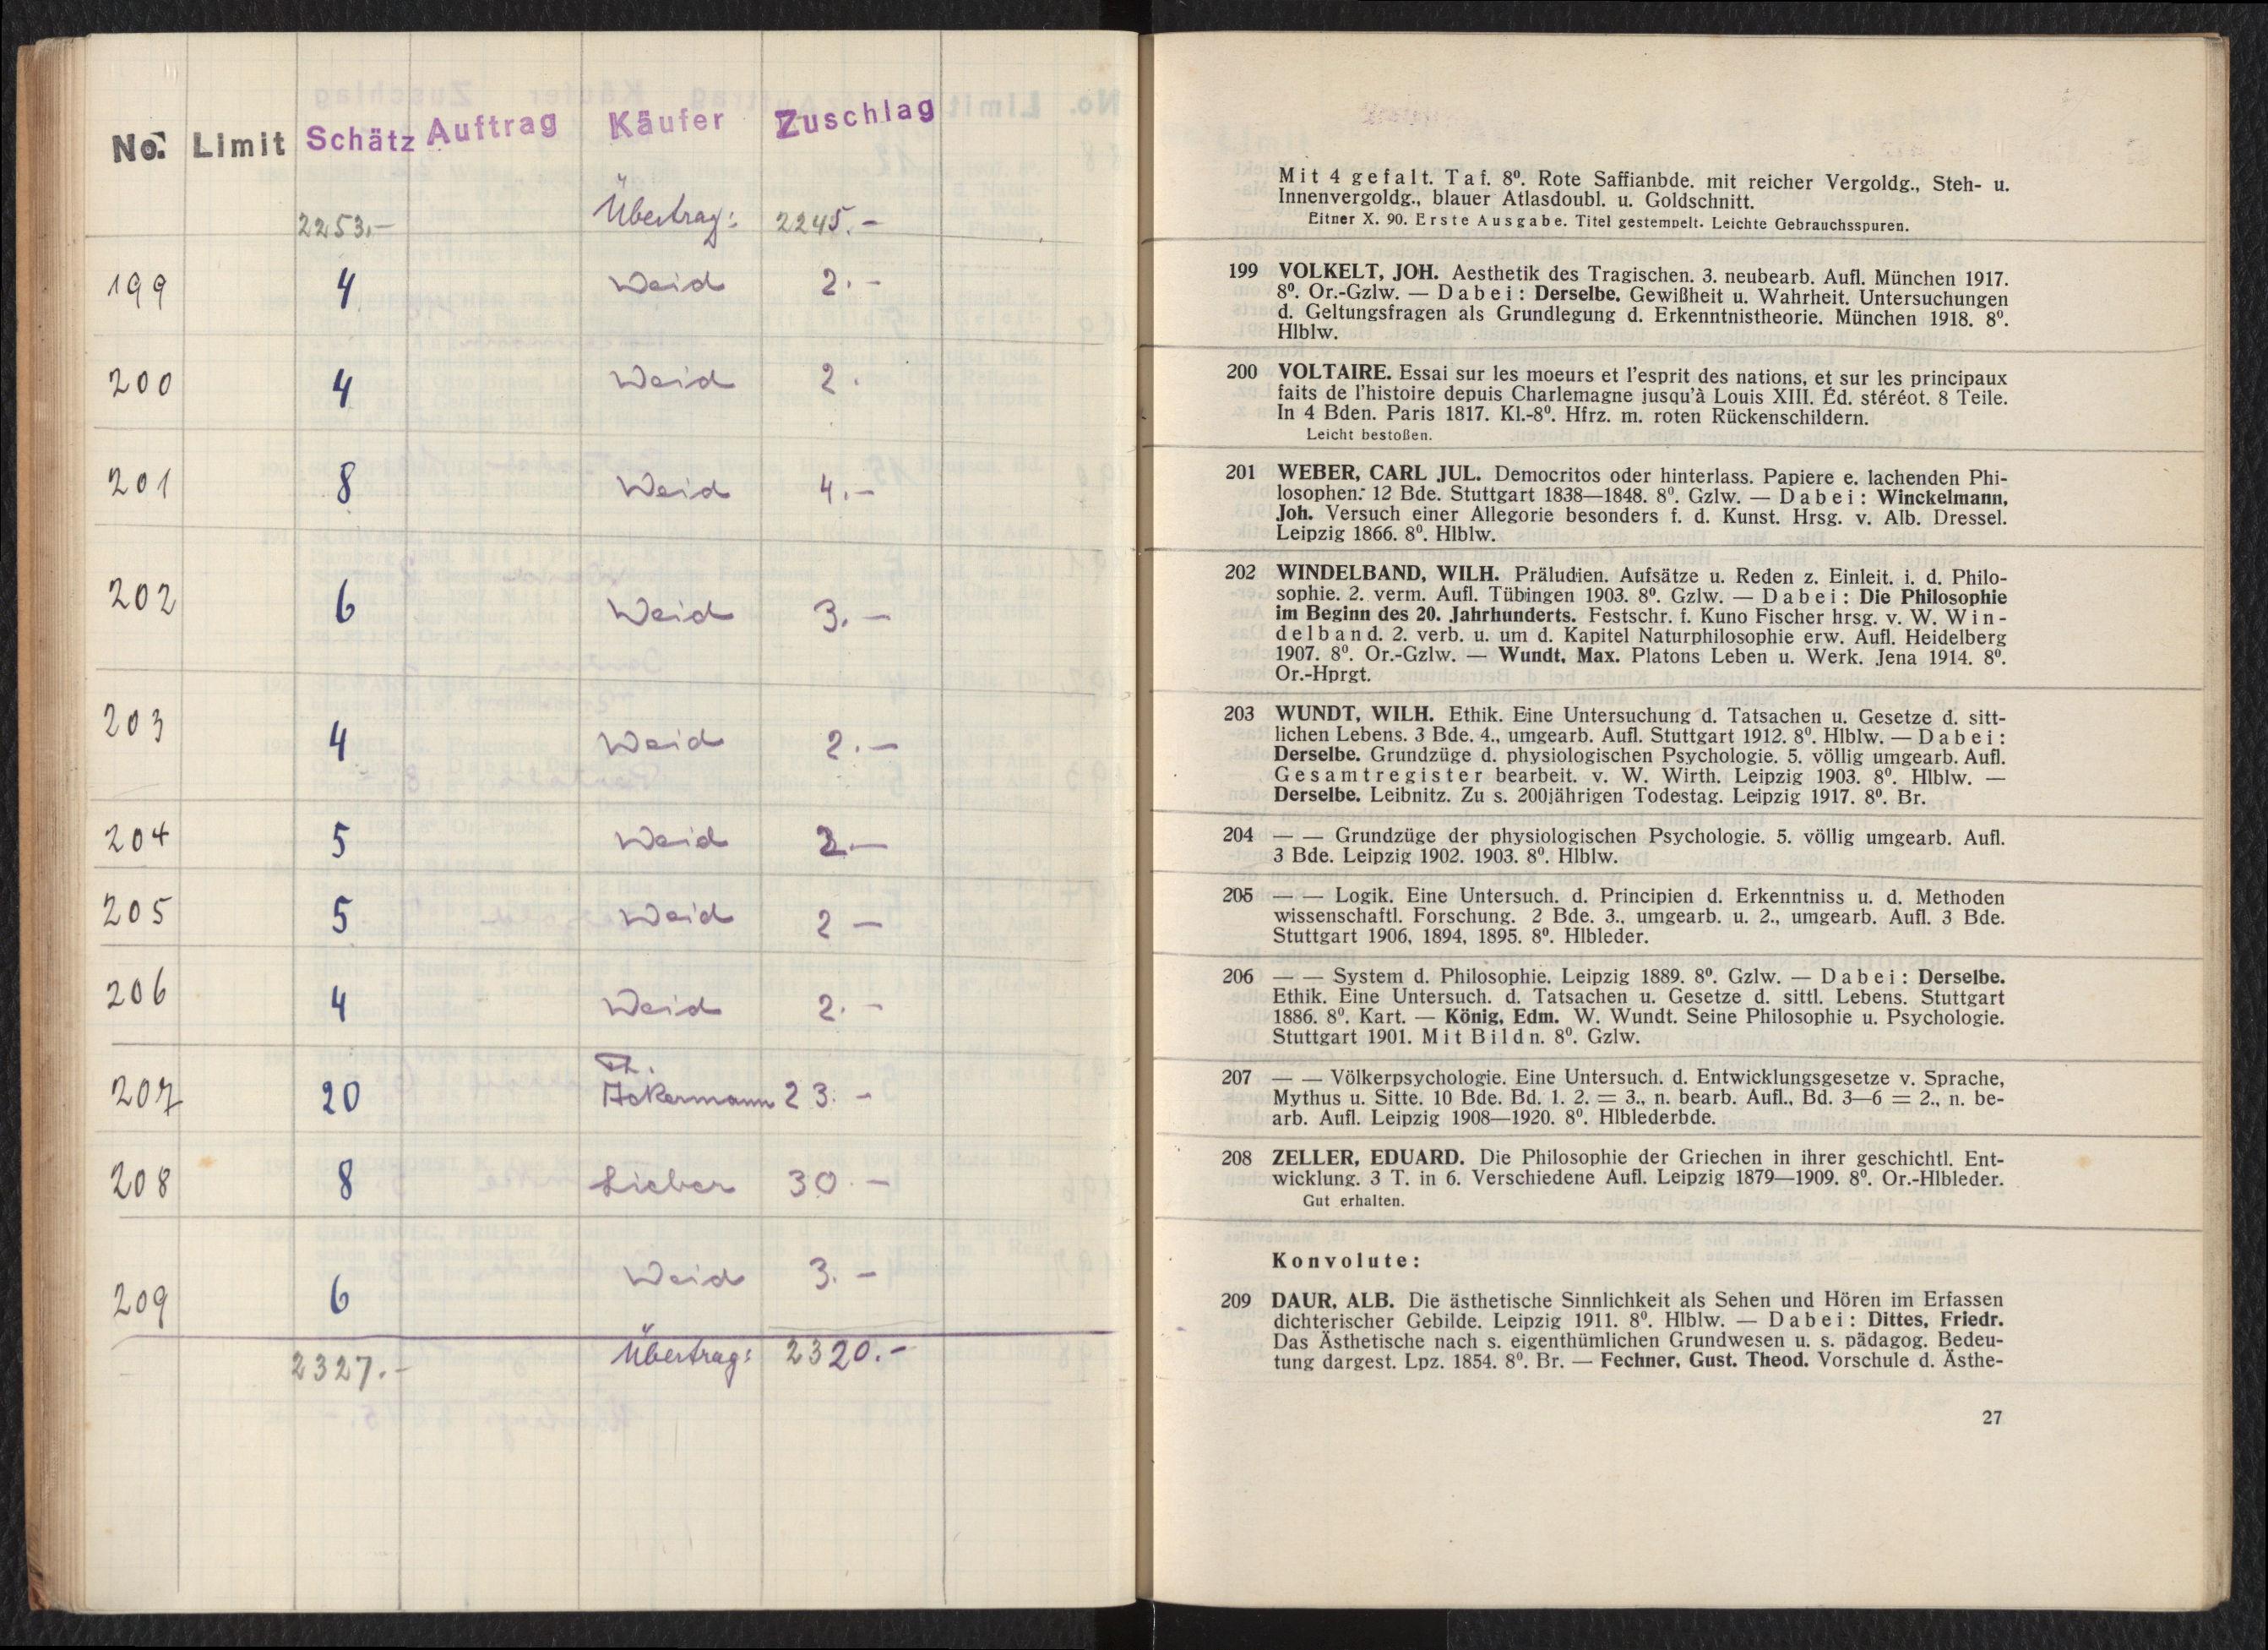 No. Limit Schätz Auftrag Käufer Zuschlag
2253.- Übertrag: 2245.-
199 4 Weid 2.-
200 4 Weid 2.
201 8 Weid 4.-
202 6 Weid 3.-
203 4 Weid 2.-
204 5 Weid 2.-
205 5 Weid 2 -
206 4 Weid 2.-
Th.
207 20 Ackermann 23.-
208 8 Lieber 30.-
209 6 Weid 3.-
2327.- Übertrag: 2320.-
Mit 4 gefalt. Taf. 8⁰. Rote Saffianbde. mit reicher Vergoldg., Steh- u.
Innenvergoldg., blauer Atlasdoubl. u. Goldschnitt.
Eitner X. 90. Erste Ausgabe. Titel gestempelt. Leichte Gebrauchsspuren.
199 VOLKELT, JOH. Aesthetik des Tragischen. 3. neubearb. Aufl. München 1917.
8⁰. Or.-Gzlw. — Dabei: Derselbe. Gewißheit u. Wahrheit. Untersuchungen
d. Geltungsfragen als Grundlegung d. Erkenntnistheorie. München 1918. 8⁰.
Hlblw.
200 VOLTAIRE. Essai sur les moeurs et l'esprit des nations, et sur les principaux
faits de l'histoire depuis Charlemagne jusqu'à Louis XIII. Éd. stéréot. 8 Teile.
In 4 Bden. Paris 1817. Kl.-8⁰. Hfrz. m. roten Rückenschildern.
Leicht bestoßen.
201 WEBER, CARL JUL. Democritos oder hinterlass. Papiere e. lachenden Phi-
losophen. 12 Bde. Stuttgart 1838—1848. 8⁰. Gzlw. — Dabei: Winckelmann,
Joh. Versuch einer Allegorie besonders f. d. Kunst. Hrsg. v. Alb. Dressel.
Leipzig 1866. 8⁰. Hlblw.
202 WINDELBAND, WILH. Präludien. Aufsätze u. Reden z. Einleit. i. d. Philo-
sophie. 2. verm. Aufl. Tübingen 1903. 8⁰. Gzlw. — Dabei: Die Philosophie
im Beginn des 20. Jahrhunderts. Festschr. f. Kuno Fischer hrsg. v. W. Win-
delband. 2. verb. u. um d. Kapitel Naturphilosophie erw. Aufl. Heidelberg
1907. 8⁰. Or.-Gzlw. — Wundt, Max. Platons Leben u. Werk. Jena 1914. 8⁰.
Or.-Hprgt.
203 WUNDT, WILH. Ethik. Eine Untersuchung d. Tatsachen u. Gesetze d. sitt-
lichen Lebens. 3 Bde. 4., umgearb. Aufl. Stuttgart 1912. 8⁰. Hlblw. — Dabei:
Derselbe. Grundzüge d. physiologischen Psychologie. 5. völlig umgearb. Aufl.
Gesamtregister bearbeit. v. W. Wirth. Leipzig 1903. 8⁰. Hlblw. —
Derselbe. Leibnitz. Zu s. 200jährigen Todestag. Leipzig 1917. 8⁰. Br.
204 — — Grundzüge der physiologischen Psychologie. 5. völlig umgearb. Aufl.
3 Bde. Leipzig 1902. 1903. 8⁰. Hlblw.
205 — — Logik. Eine Untersuch. d. Principien d. Erkenntniss u. d. Methoden
wissenschaftl. Forschung. 2 Bde. 3., umgearb. u. 2., umgearb. Aufl. 3 Bde.
Stuttgart 1906, 1894, 1895. 8⁰. Hlbleder.
206 — — System d. Philosophie. Leipzig 1889. 8⁰. Gzlw. — Dabei: Derselbe.
Ethik. Eine Untersuch. d. Tatsachen u. Gesetze d. sittl. Lebens. Stuttgart
1886. 8⁰. Kart. — König, Edm. W. Wundt. Seine Philosophie u. Psychologie.
Stuttgart 1901. Mit Bildn. 8⁰. Gzlw.
207 — — Völkerpsychologie. Eine Untersuch. d. Entwicklungsgesetze v. Sprache,
Mythus u. Sitte. 10 Bde. Bd. 1. 2. = 3., n. bearb. Aufl., Bd. 3—6 = 2., n. be-
arb. Aufl. Leipzig 1908—1920. 8⁰. Hlblederbde.
208 ZELLER, EDUARD. Die Philosophie der Griechen in ihrer geschichtl. Ent-
wicklung. 3 T. in 6. Verschiedene Aufl. Leipzig 1879—1909. 8⁰. Or.-Hlbleder.
Gut erhalten.
Konvolute:
209 DAUR, ALB. Die ästhetische Sinnlichkeit als Sehen und Hören im Erfassen
dichterischer Gebilde. Leipzig 1911. 8⁰. Hlblw. — Dabei: Dittes, Friedr.
Das Ästhetische nach s. eigenthümlichen Grundwesen u. s. pädagog. Bedeu-
tung dargest. Lpz. 1854. 8⁰. Br. — Fechner, Gust. Theod. Vorschule d. Ästhe-
27